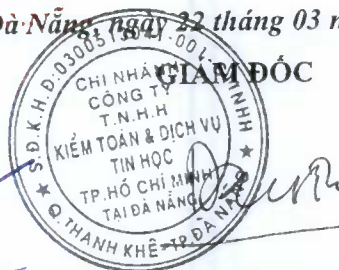 Đà Nẵng, ngày 22 tháng 03
GIÁM ĐỐC
CHI NHÁNH
CÔNG TY
T.N.H.H
KIỂM TOÁN & DỊCH VỤ
TIN HỌC
TP.HỒ CHÍ MINH
TẠI ĐÀ NẴNG
Q.THANH KHÊ-TP.ĐÀ NẴNG